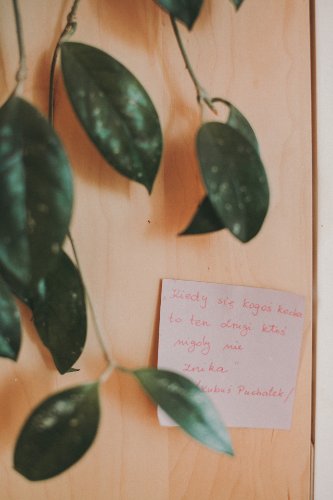 „Kiedy się kogoś kocha
to ten drugi ktoś
nigdy nie
znika"
/Kubuś Puchatek/